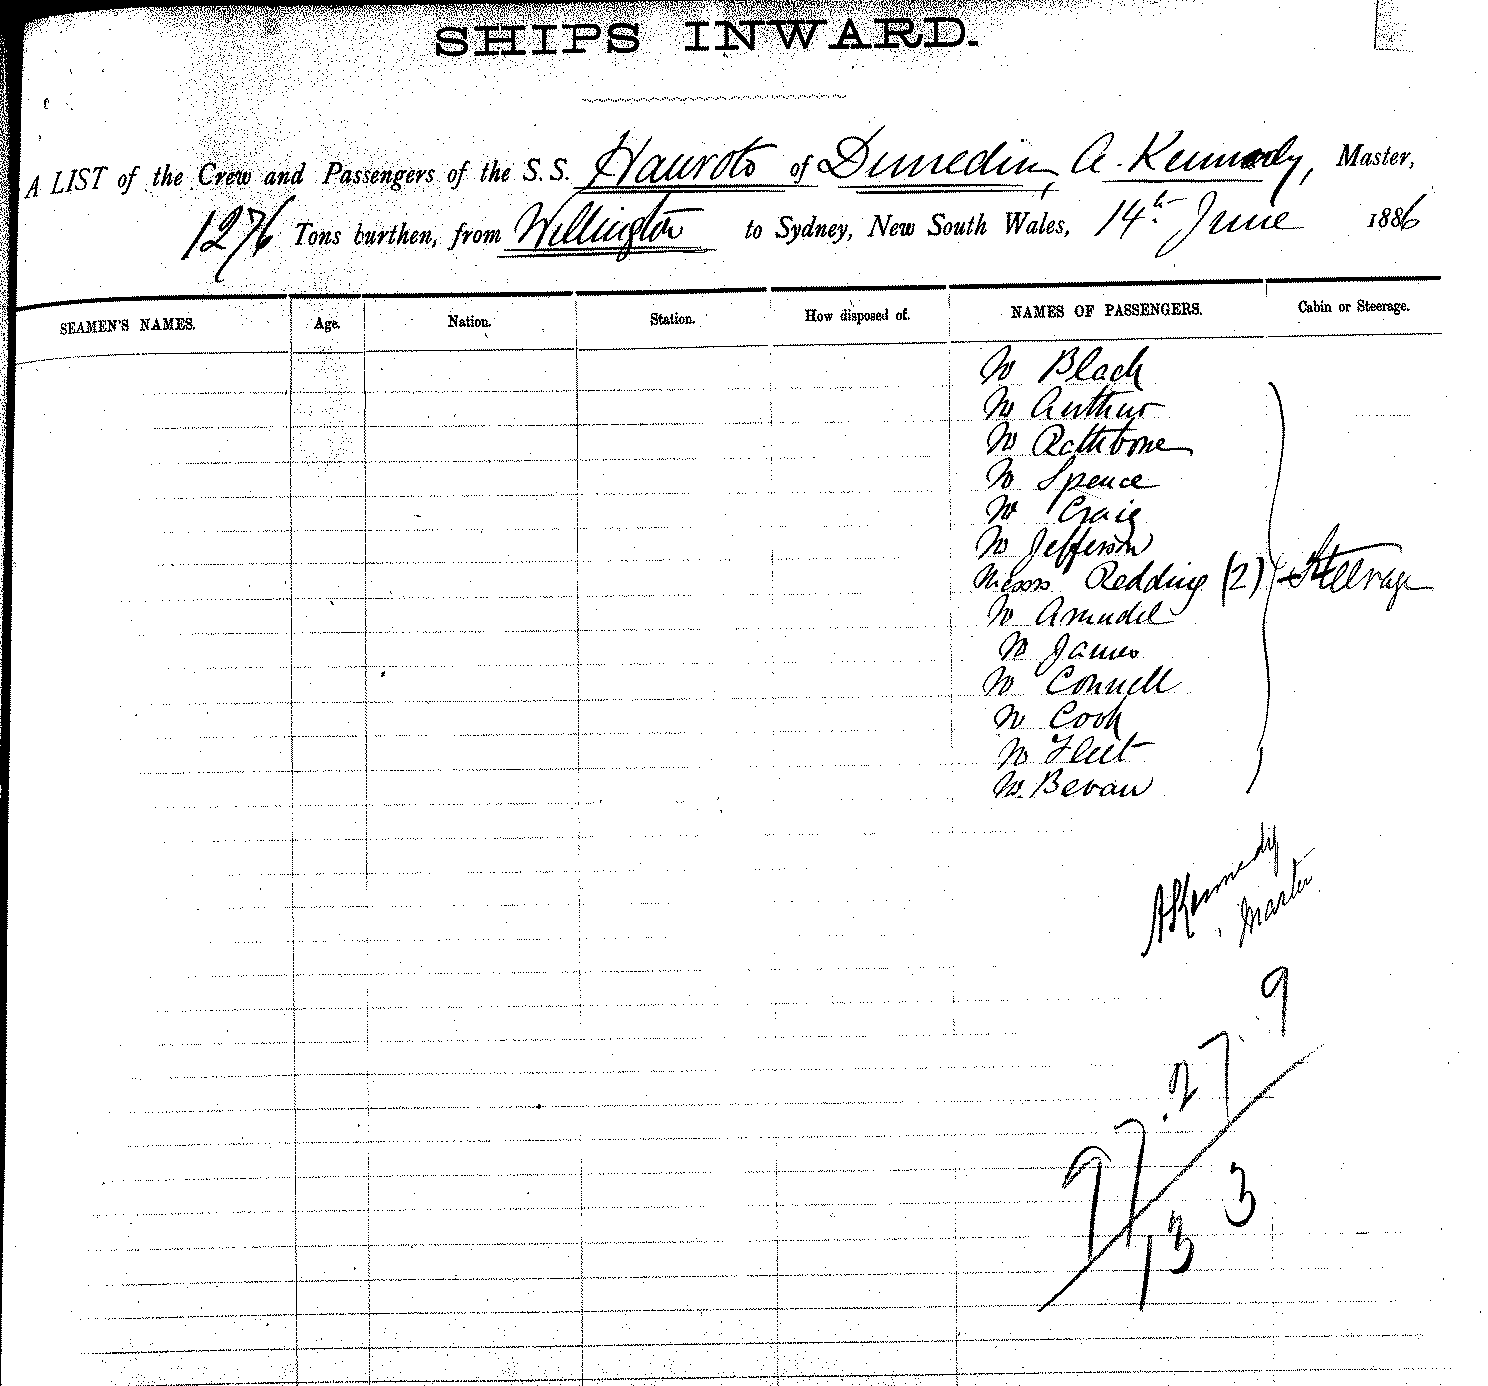 SHIPS INWARD.
A LIST of the Crew and Passengers of the S.S. Hauroto of Dunedin, A. Kennedy, Master,
1276 Tons burthen, from Wellington to Sydney, New South Wales, 14th June 1886
SEAMEN'S NAMES. Age. Nation. Station. How disposed of. NAMES OF PASSENGERS. Cabin or Steerage.
Mr Black
Mr Arthur
Mr Rathbone
Mr Spence
Mr Craig
Mr Jefferson
Messrs Redding (2) Steerage
Mr Arundel
Mr James
Mr Connell
Mr Cook
Mr Fleet
Mr Bevan
A Kennedy
Master
9
27
97
3
13